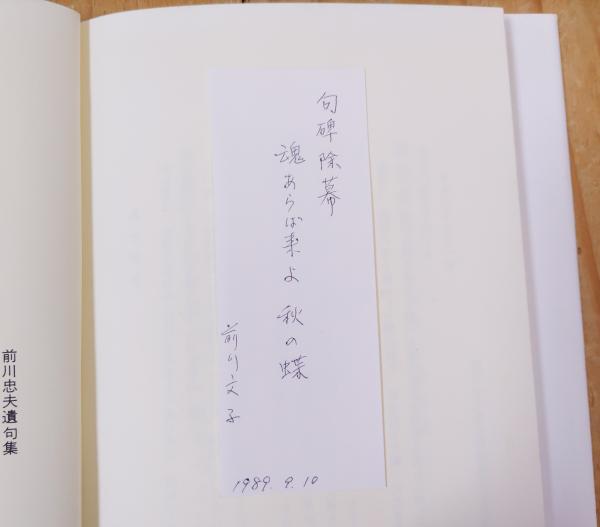 句碑除幕
魂あらば来よ 秋の蝶
前川文子
1989. 9. 10
前川忠夫遺句集